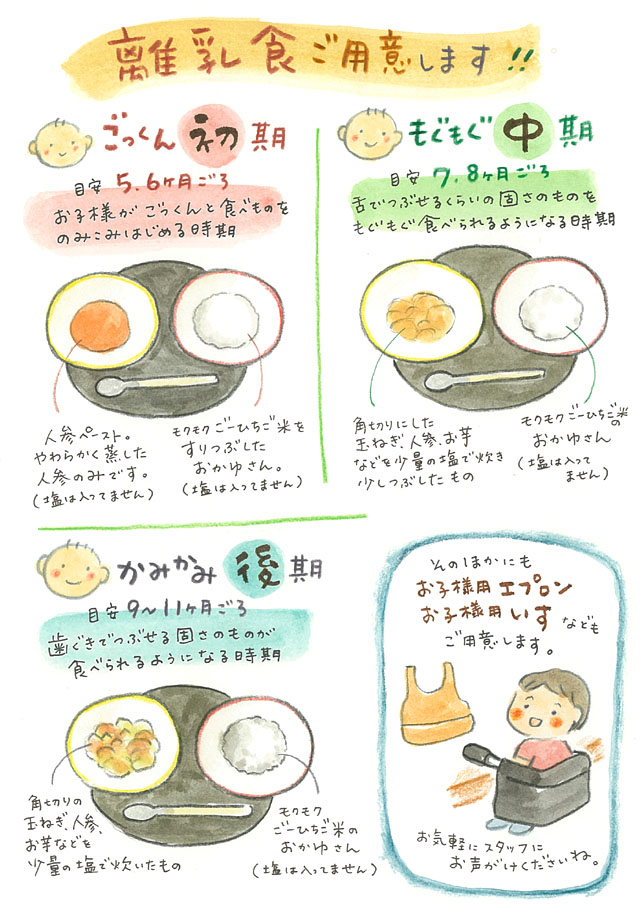 離乳食ご用意します!!
ごっくん 初期
目安 5.6ヶ月ごろ
お子様がごっくんと食べものを
のみこみはじめる時期
人参ペースト。
やわらかく蒸した
人参のみです。
(塩は入ってません)
モクモクごーひちご米を
すりつぶした
おかゆさん。
(塩は入ってません)
もぐもぐ 中期
目安 7.8ヶ月ごろ
舌でつぶせるくらいの固さのものを
もぐもぐ食べられるようになる時期
角切りにした
玉ねぎ、人参、お芋
などを少量の塩で炊き
少しつぶしたもの
モクモクごーひちご米の
おかゆさん
(塩は入って
ません)
かみかみ 後期
目安 9〜11ヶ月ごろ
歯ぐきでつぶせる固さのものが
食べられるようになる時期
角切りの
玉ねぎ、人参、
お芋などを
少量の塩で炊いたもの
モクモク
ごーひちご米の
おかゆさん
(塩は入ってません)
そのほかにも
お子様用エプロン
お子様用いす なども
ご用意します。
お気軽にスタッフに
お声がけくださいね。